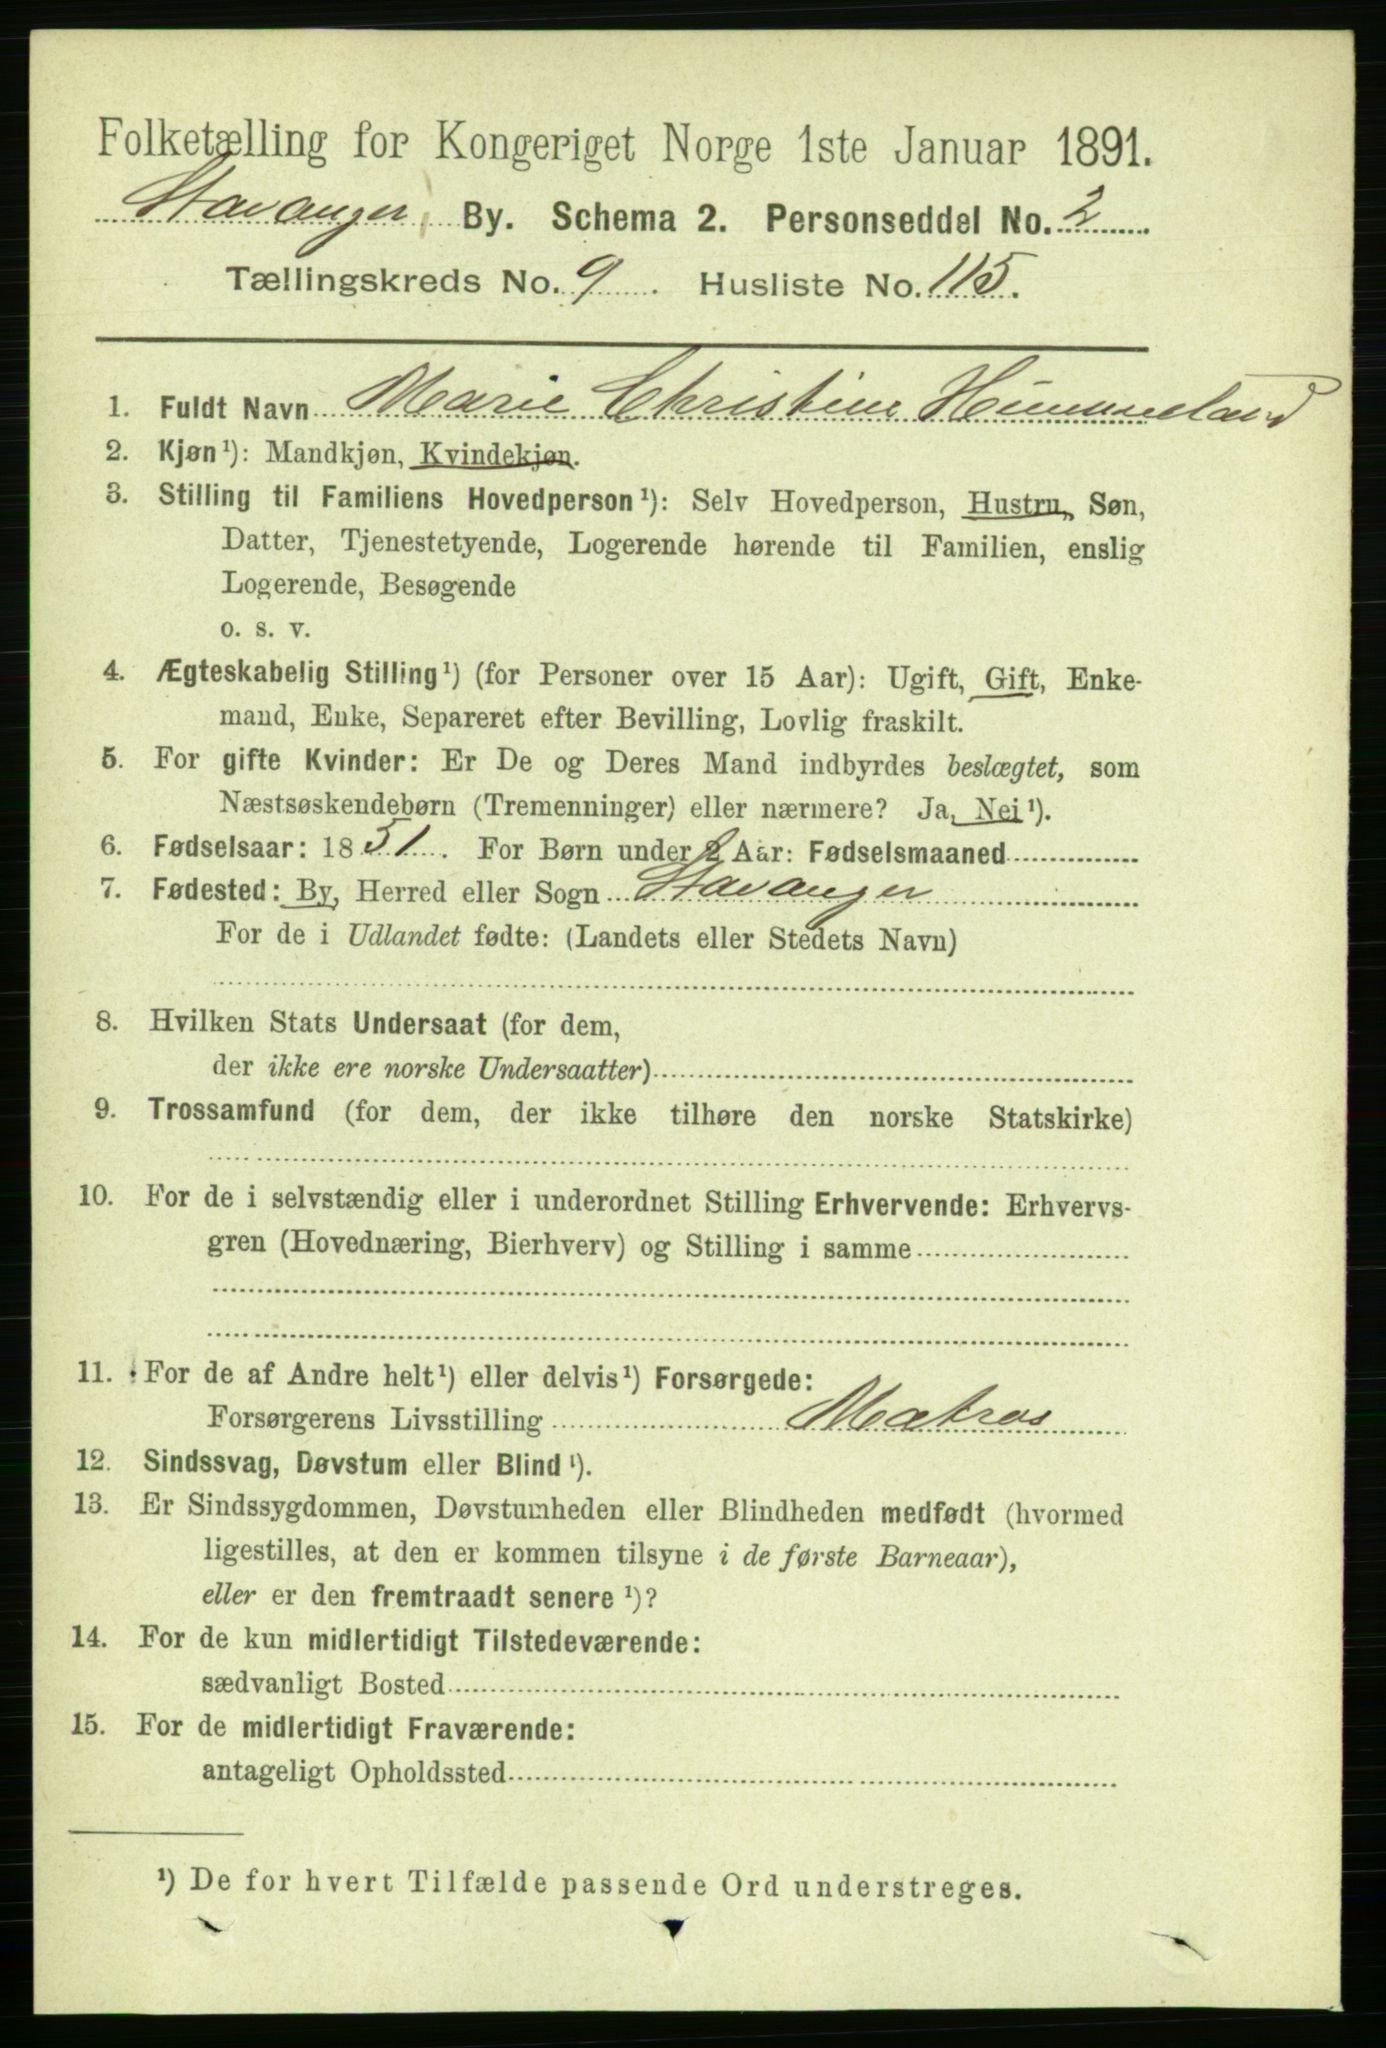 Folketælling for Kongeriget Norge 1ste Januar 1891.
Stavanger, By. Schema 2. Personseddel No. 2
Tællingskreds No. 9. Husliste No. 115.
1. Fuldt Navn Marie Christine Himmeland
2. Kjøn¹): Mandkjøn, Kvindekjøn.
3. Stilling til Familiens Hovedperson¹): Selv Hovedperson, Hustru, Søn,
Datter, Tjenestetyende, Logerende hørende til Familien, enslig
Logerende, Besøgende
o. s. v.
4. Ægteskabelig Stilling¹) (for Personer over 15 Aar): Ugift, Gift, Enke-
mand, Enke, Separeret efter Bevilling, Lovlig fraskilt.
5. For gifte Kvinder: Er De og Deres Mand indbyrdes beslægtet, som
Næstsøskendebørn (Tremenninger) eller nærmere? Ja, Nei¹).
6. Fødselsaar: 1851. For Børn under 2 Aar: Fødselsmaaned
7. Fødested: By, Herred eller Sogn Stavanger
For de i Udlandet fødte: (Landets eller Stedets Navn)
8. Hvilken Stats Undersaat (for dem,
der ikke ere norske Undersaatter)
9. Trossamfund (for dem, der ikke tilhøre den norske Statskirke)
10. For de i selvstændig eller i underordnet Stilling Erhvervende: Erhvervs-
gren (Hovednæring, Bierhverv) og Stilling i samme
11. For de af Andre helt¹) eller delvis¹) Forsørgede:
Forsørgerens Livsstilling Matros
12. Sindssvag, Døvstum eller Blind¹).
13. Er Sindssygdommen, Døvstumheden eller Blindheden medfødt (hvormed
ligestilles, at den er kommen tilsyne i de første Barneaar),
eller er den fremtraadt senere¹)?
14. For de kun midlertidigt Tilstedeværende:
sædvanligt Bosted
15. For de midlertidigt Fraværende:
antageligt Opholdssted
¹) De for hvert Tilfælde passende Ord understreges.